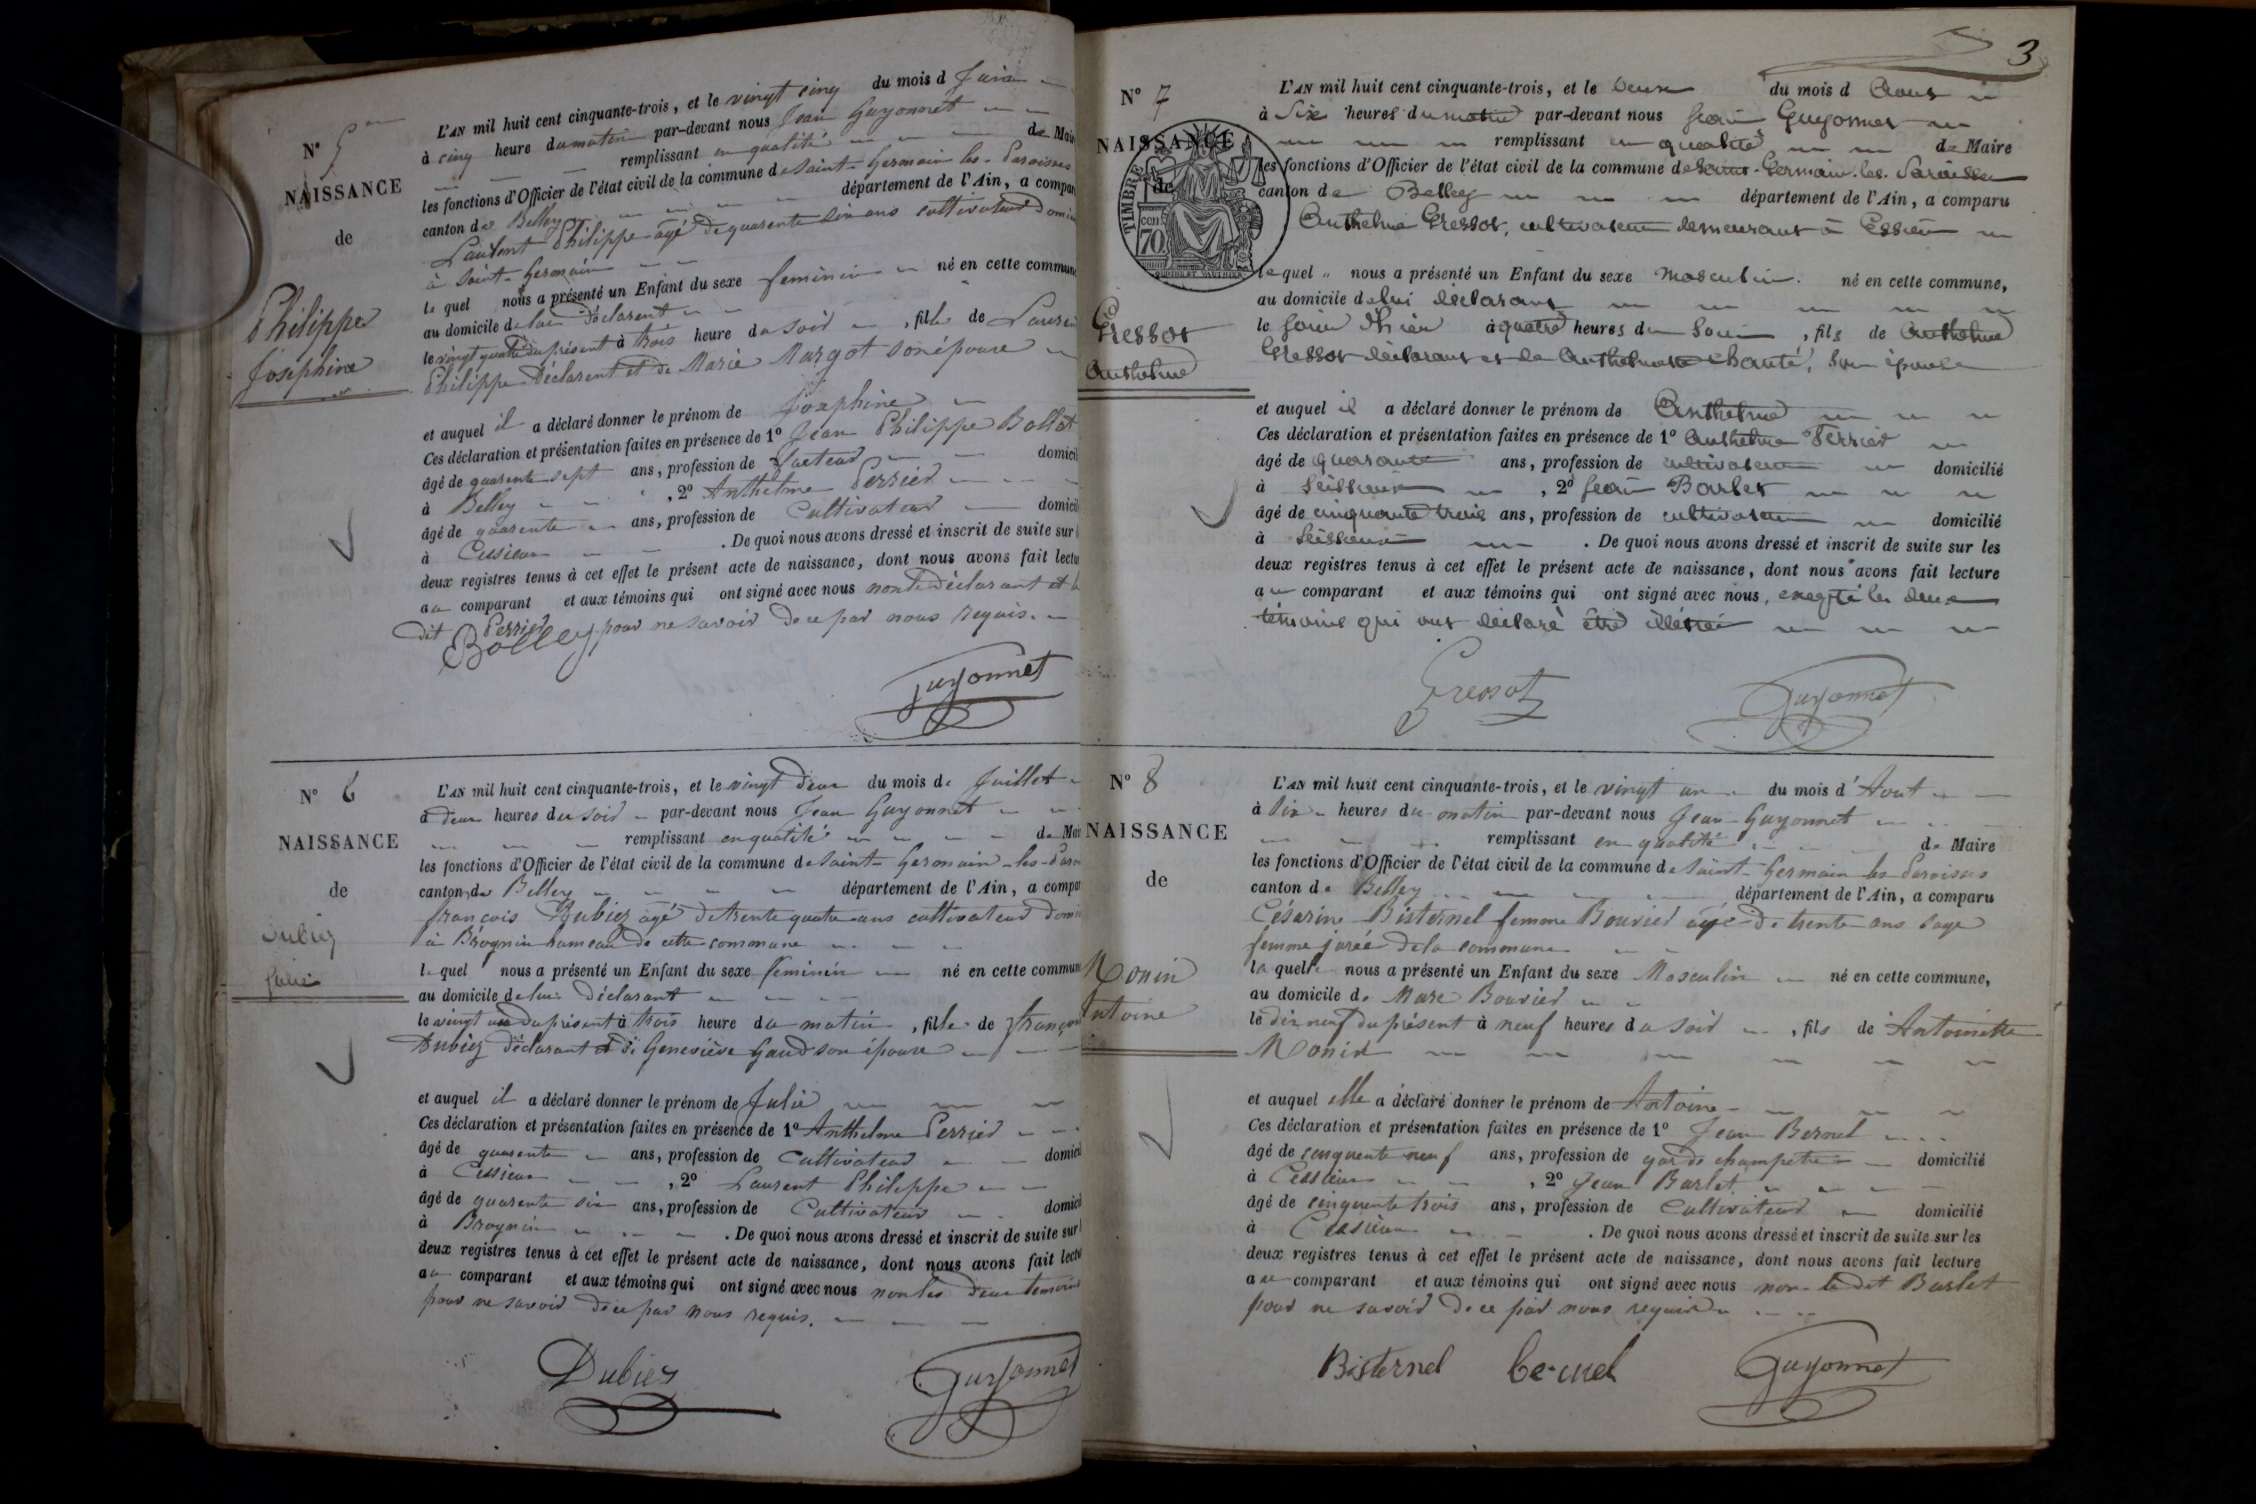 N° 5
NAISSANCE
de
Philippe
Joséphine
L'AN mil huit cent cinquante-trois, et le vingt cinq du mois d Juin
à cinq heure du matin par-devant nous Jean Guyonnet
remplissant en qualité de Mair
les fonctions d'Officier de l'état civil de la commune de Saint-Germain-les-Paroisses
canton de Belley département de l'Ain, a compar
Laurent Philippe agé de quarente six ans cultivateur domici
à Saint-Germain
le quel nous a présenté un Enfant du sexe feminin né en cette commune
au domicile de lui déclarent
le vingt quatre du présent à trois heure du soir , fille de Lauren
Philippe déclarent et de Marie Margot son épouse
et auquel il a déclaré donner le prénom de Josephine
Ces déclaration et présentation faites en présence de 1° Jean Philippe Bollet
âgé de quarente sept ans, profession de facteur domicil
à Belley , 2° Anthelme Perrier
âgé de quarente ans, profession de Cultivateur domicil
à Cessieux . De quoi nous avons dressé et inscrit de suite sur l
deux registres tenus à cet effet le présent acte de naissance, dont nous avons fait lectur
au comparant et aux témoins qui ont signé avec nous non le déclarant et le
dit Perrier pour ne savoir de ce par nous requis.
Guyonnet
N° 6
NAISSANCE
de
Dubiez
Julie
L'AN mil huit cent cinquante-trois, et le vingt deux du mois de Juillet
à deux heures du soir par-devant nous Jean Guyonnet
remplissant en qualité de Mair
les fonctions d'Officier de l'état civil de la commune de Saint-Germain-les-Paro
canton de Belley département de l'Ain, a compar
françois Dubiez agé de trente quatre ans cultivateur domic
à Brognin hameau de cette commune
le quel nous a présenté un Enfant du sexe feminin né en cette commun
au domicile de lui déclarant
le vingt un du présent à trois heure du matin , fille de françois
Dubiez déclarant et de Geneviève Gaud son épouse
et auquel il a déclaré donner le prénom de Julie
Ces déclaration et présentation faites en présence de 1° Anthelme Perrier
âgé de quarente ans, profession de Cultivateur domicil
à Cessieux , 2° Laurent Philippe
âgé de quarente six ans, profession de Cultivateur domici
à Brognin . De quoi nous avons dressé et inscrit de suite sur
deux registres tenus à cet effet le présent acte de naissance, dont nous avons fait lectu
au comparant et aux témoins qui ont signé avec nous non les deux temoins
pour ne savoir de ce par nous requis.
Dubiez Guyonnet
3
N° 7
NAISSANCE
de
TIMBRE
70
Gressot
Anthelme
L'AN mil huit cent cinquante-trois, et le deux du mois d Aout
à Six heures du matin par-devant nous Jean Guyonnet
remplissant en qualité de Maire
les fonctions d'Officier de l'état civil de la commune de Saint-Germain-les-Paroisses
canton de Belley département de l'Ain, a comparu
Anthelme Gressot, cultivateur demeurant à Essieu
lequel nous a présenté un Enfant du sexe masculin né en cette commune,
au domicile de lui déclarant
le jour d'hier à quatre heures du soir , fils de Anthelme
Gressot déclarant et de Anthelmette Chanté, son épouse
et auquel il a déclaré donner le prénom de Anthelme
Ces déclaration et présentation faites en présence de 1° Anthelme Perrier
âgé de quarante ans, profession de cultivateur domicilié
à , 2° Jean Barlet
âgé de cinquante trois ans, profession de cultivateur domicilié
à . De quoi nous avons dressé et inscrit de suite sur les
deux registres tenus à cet effet le présent acte de naissance, dont nous avons fait lecture
au comparant et aux témoins qui ont signé avec nous, excepté les deux
témoins qui ont déclaré être
Gressot Guyonnet
N° 8
NAISSANCE
de
Monin
Antoine
L'AN mil huit cent cinquante-trois, et le vingt un du mois d'Aout
à dix heures du matin par-devant nous Jean Guyonnet
remplissant en qualité de Maire
les fonctions d'Officier de l'état civil de la commune de Saint-Germain les Paroisses
canton de Belley département de l'Ain, a comparu
Césarine Bisternel femme Bouvier agée de trente ans sage
femme jurée de la commune
la quelle nous a présenté un Enfant du sexe Masculin né en cette commune,
au domicile de Marc Bouvier
le dix neuf du présent à neuf heures du soir , fils de Antoinette
Monin
et auquel elle a déclaré donner le prénom de Antoine
Ces déclaration et présentation faites en présence de 1° Jean Bernel
âgé de cinquente neuf ans, profession de garde champetre domicilié
à Cessieux , 2° Jean Barlet
âgé de cinquente trois ans, profession de Cultivateur domicilié
à Cessieux . De quoi nous avons dressé et inscrit de suite sur les
deux registres tenus à cet effet le présent acte de naissance, dont nous avons fait lecture
au comparant et aux témoins qui ont signé avec nous non le dit Barlet
pour ne savoir de ce par nous requis
Bisternel Guyonnet